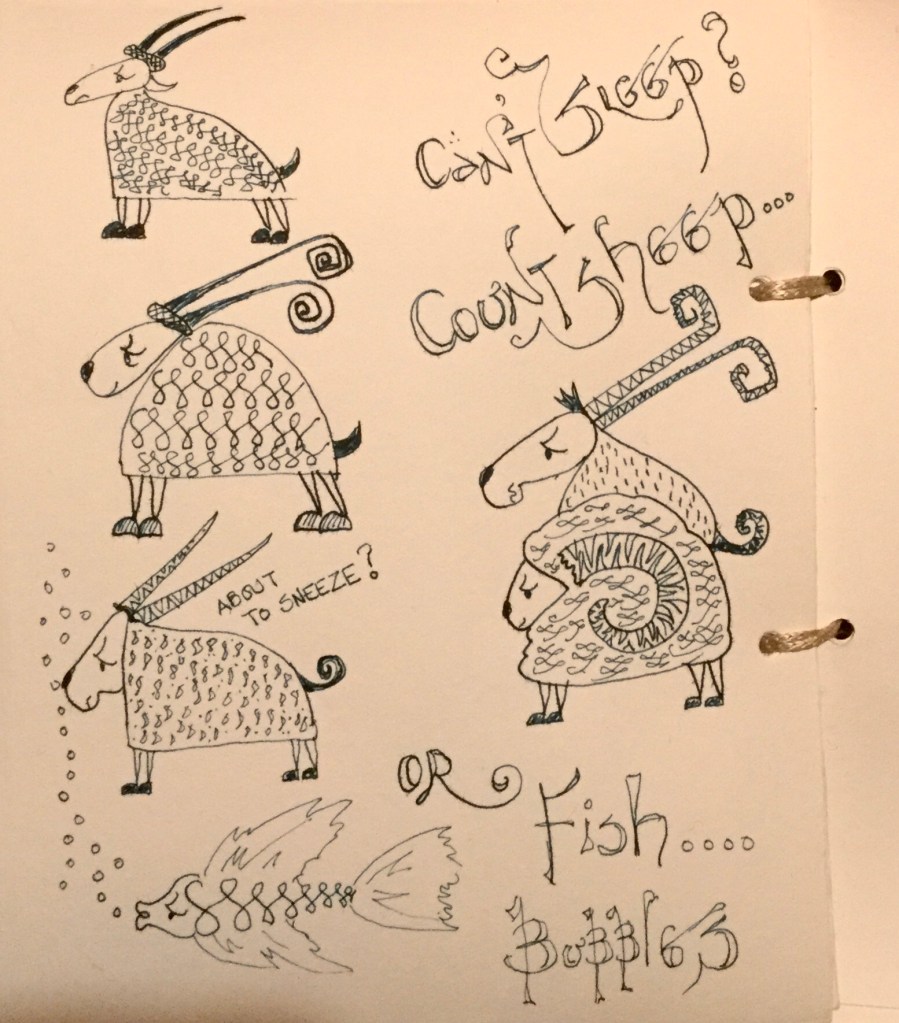 Can't Sleep?
Count Sheep...
ABOUT
TO SNEEZE?
OR
Fish....
Bubbles